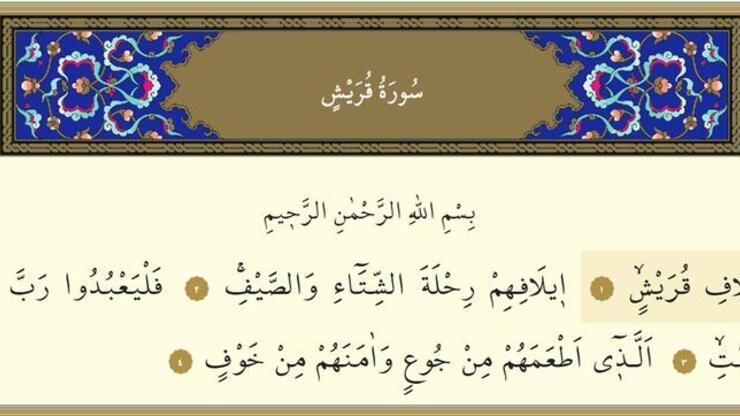 سُورَةُ قُرَيْشٍ
بِسْمِ اللهِ الرَّحْمٰنِ الرَّحٖيمِ
قُرَيْشٍۙ ١ اٖيلَافِهِمْ رِحْلَةَ الشِّتَٓاءِ وَالصَّيْفِۚ ٢ فَلْيَعْبُدُوا رَبَّ
٣ اَلَّـذٖٓي اَطْعَمَهُمْ مِنْ جُوعٍ وَاٰمَنَهُمْ مِنْ خَوْفٍ ٤